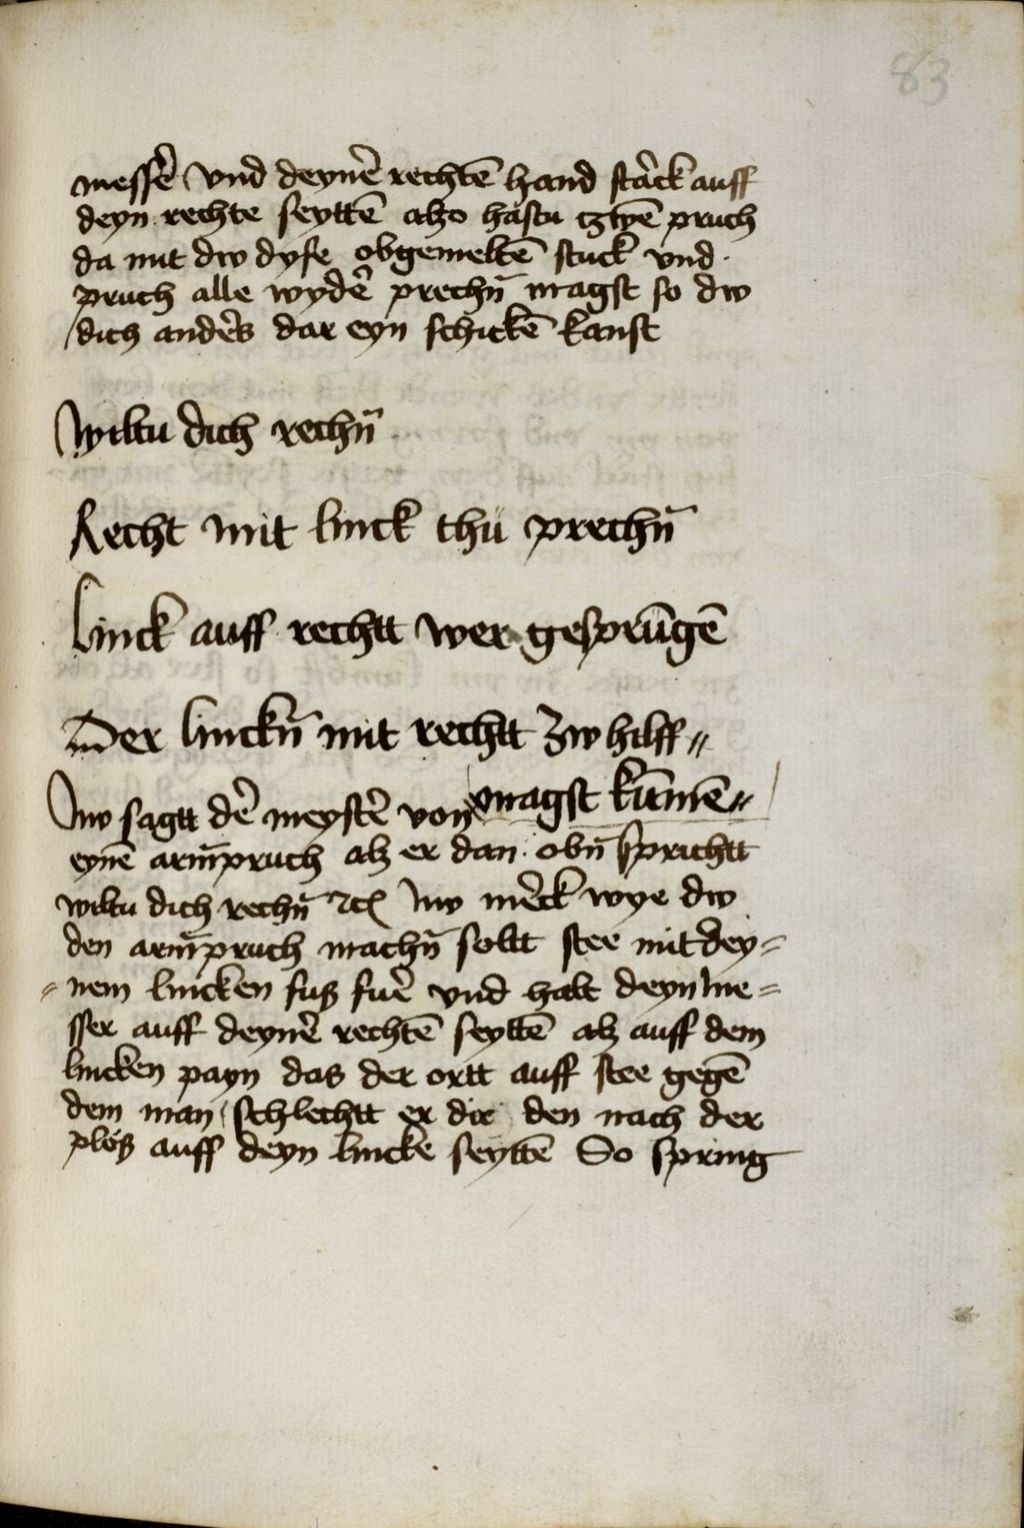 83
messe͂ vnd deyne͂ rechte͂ hand sta͂ck auff
deyn rechte seytte͂ alzo hastu tzwe͂ pruch
da mit dw dyse obgemelte͂ stuck vnd
pruch alle wyde͂ prechn͂ magst so dw
dich ande͂s dar eyn schicke͂ kanst
Wiltu dich rechn͂
Recht mit linck thu prechn͂
Linck auff rechtt wer gespru͂ge͂
Der linckn͂ mit rechtt zw hilff〃
magst ku͂me͂〃
Nw sagtt de͂ meyste͂ von
eyne͂ arm͂pruch alz er dan obn͂ sprichtt
wiltu dich rechn͂ ⁊cꝭ Nw me͂ck wye dw
den arm͂pruch machn͂ soltt stee mit dey=
=nem lincken fuß fue͂ vnd halt deyn me=
sser auff deyne͂ rechte͂ seytte͂ alz auff dem
lincken payn das der ortt auff stee gege͂
dem man schlechtt er dir den nach der
plöß auff deyn lincke seytte͂ So spring